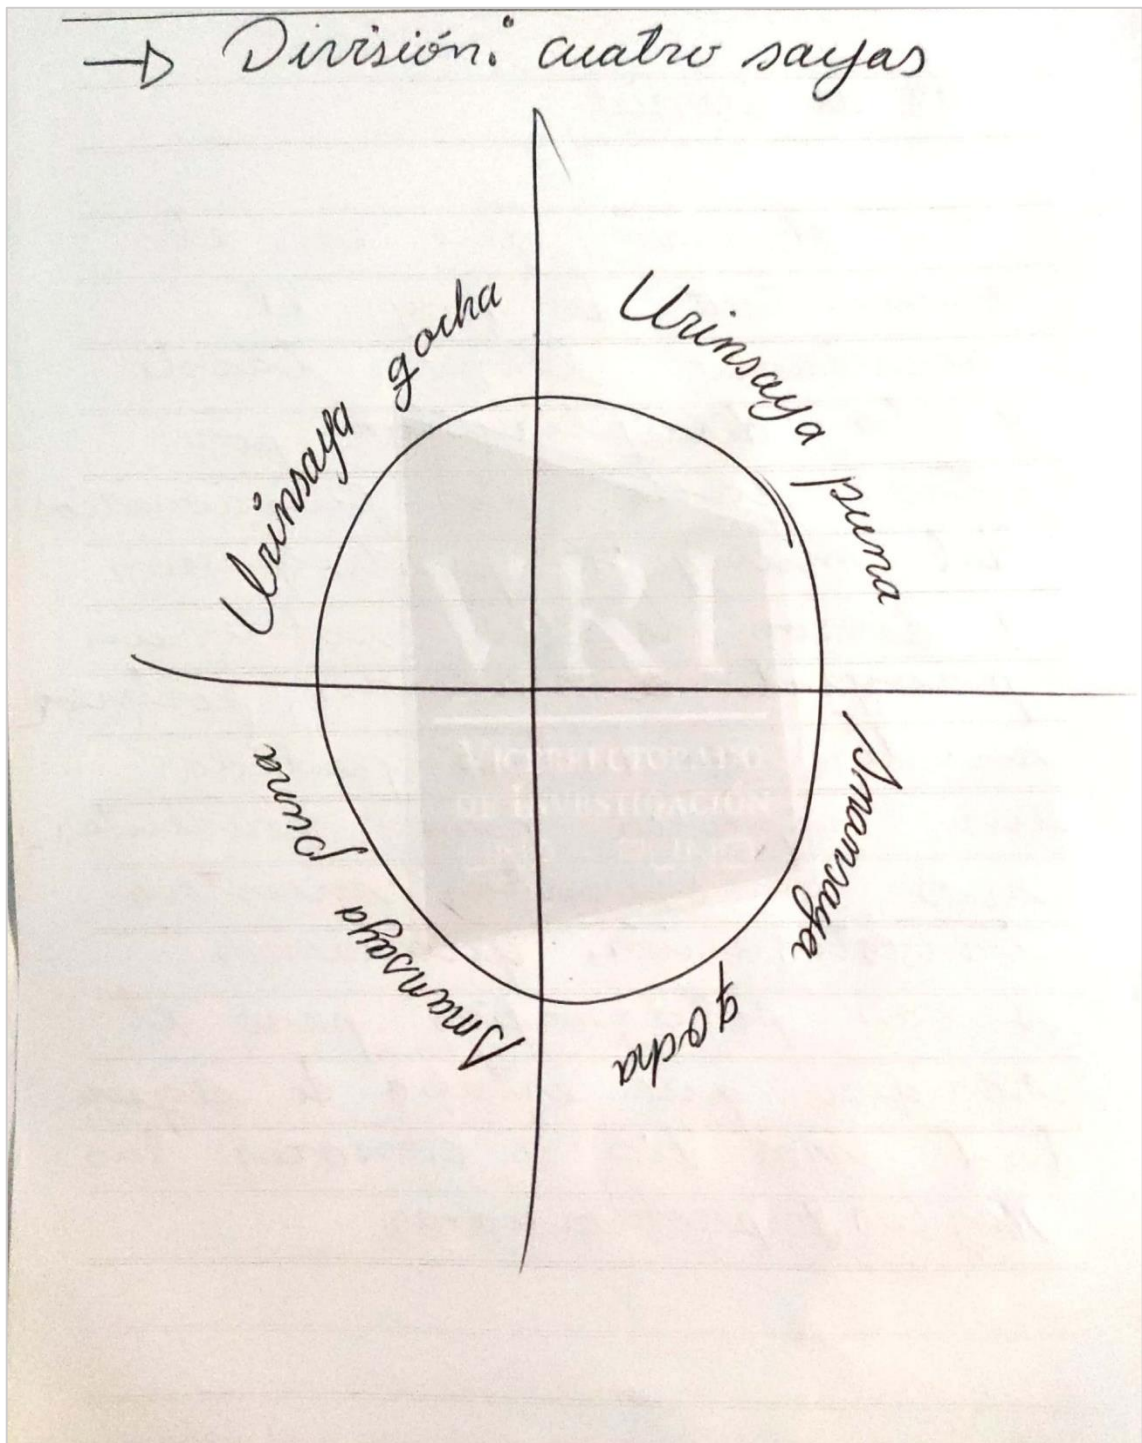 → División: cuatro sayas
Urinsaya qocha
Urinsaya puna
Amansaya puna
Amansaya qocha
VRI
VICERRECTORADO
DE INVESTIGACIÓN